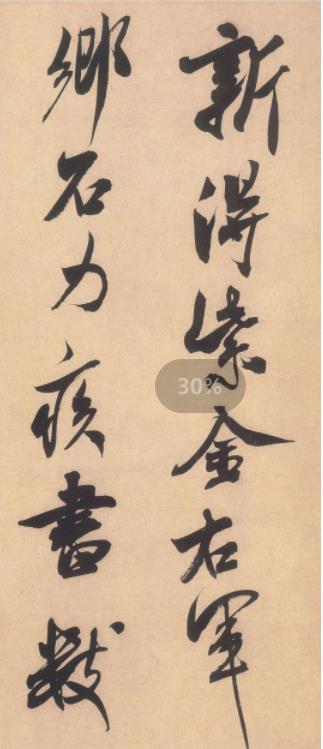 新得紫金右軍
鄉石力疾書數
30%